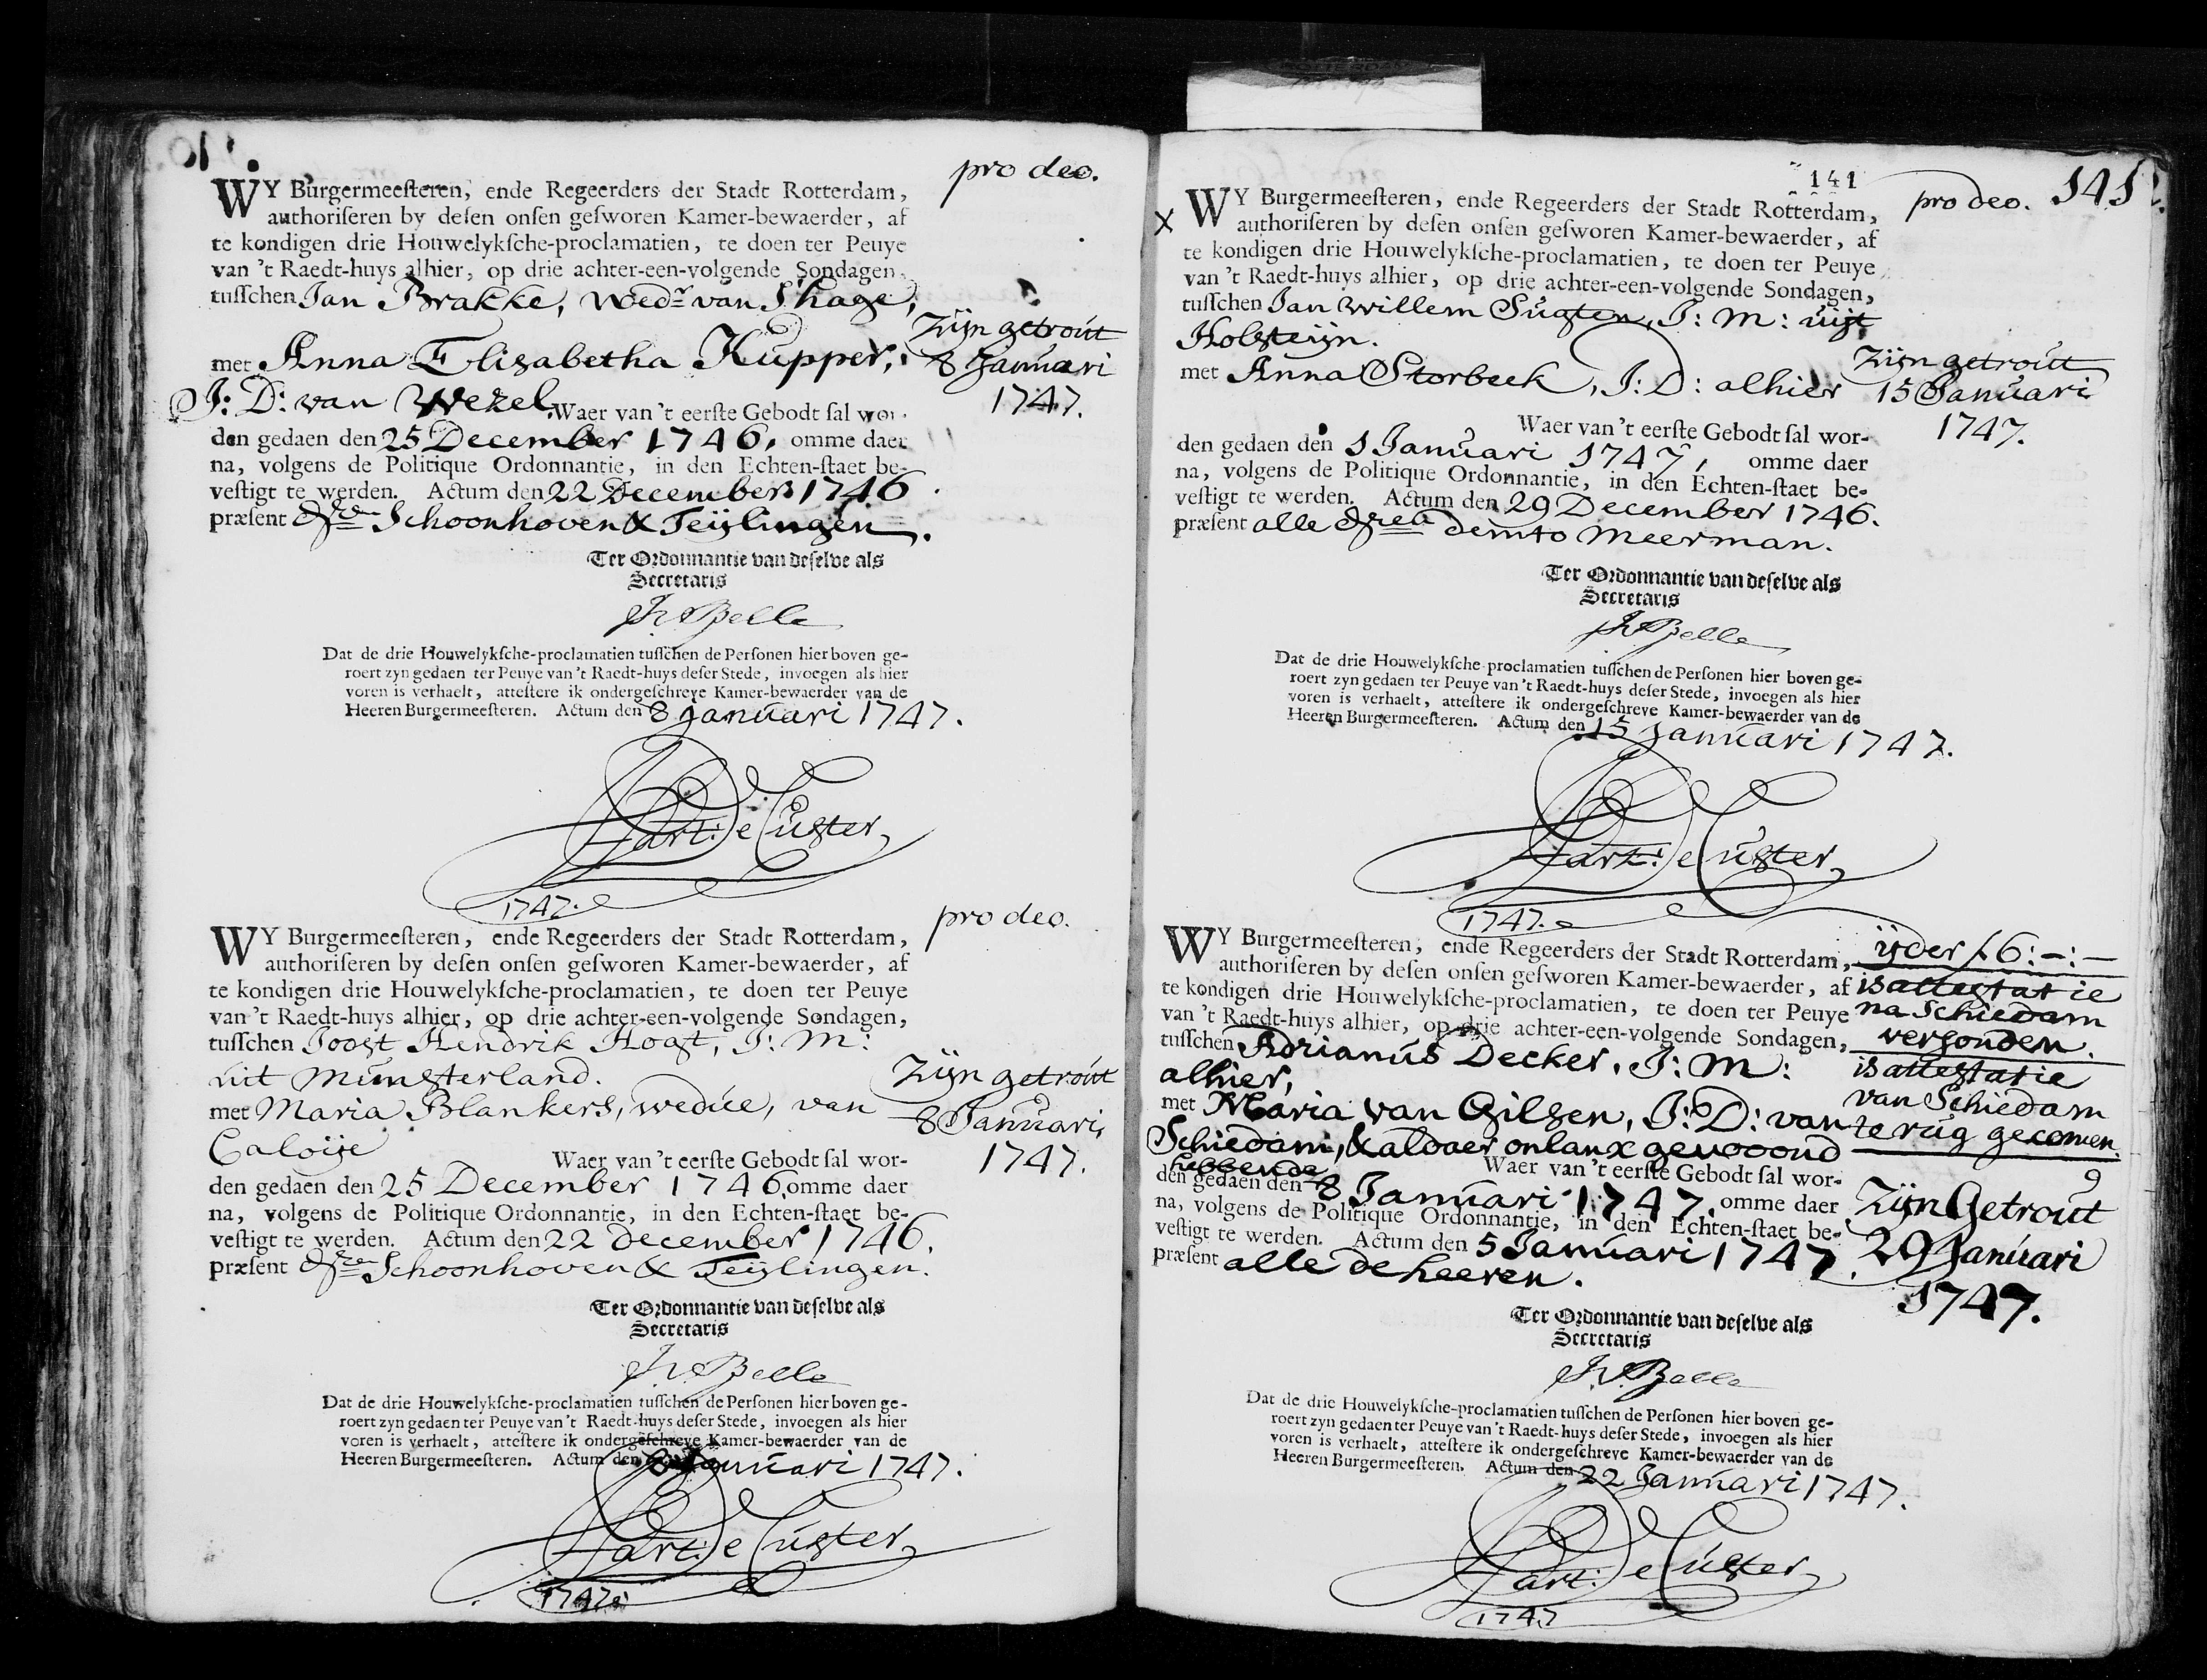 pro deo.
WY Burgermeesteren, ende Regeerders der Stadt Rotterdam,
authoriseren by desen onsen gesworen Kamer-bewaerder, af
te kondigen drie Houwelyksche-proclamatien, te doen ter Peuye
van 't Raedt-huys alhier, op drie achter-een-volgende Sondagen,
tusschen Jan Brakke, wedr van Shage,
met Anna Elisabetha Kupper,
J: D: van Wezel, Waer van 't eerste Gebodt sal wor-
den gedaen den 25 December 1746, omme daer
na, volgens de Politique Ordonnantie, in den Echten-staet be-
vestigt te werden. Actum den 22 December 1746
præsent Schoonhoven & Teijlingen.
Zijn getrout
8 Januari
1747.
Ter Ordonnantie van deselve als
Secretaris
Dat de drie Houwelyksche-proclamatien tusschen de Personen hier boven ge-
roert zyn gedaen ter Peuye van 't Raedt-huys deser Stede, invoegen als hier
voren is verhaelt, attestere ik ondergeschreve Kamer-bewaerder van de
Heeren Burgermeesteren. Actum den 8 Januari 1747.
Mart: de Custer
1747.
pro deo.
WY Burgermeesteren, ende Regeerders der Stadt Rotterdam,
authoriseren by desen onsen gesworen Kamer-bewaerder, af
te kondigen drie Houwelyksche-proclamatien, te doen ter Peuye
van 't Raedt-huys alhier, op drie achter-een-volgende Sondagen,
tusschen Joost Hendrik Hogt, J: M:
uit Munsterland.
met Maria Blankers, weduce, van
Caloije
Waer van 't eerste Gebodt sal wor-
den gedaen den 25 December 1746, omme daer
na, volgens de Politique Ordonnantie, in den Echten-staet be-
vestigt te werden. Actum den 22 December 1746.
præsent Schoonhoven & Teijlingen.
Zijn getrout
8 Januari
1747.
Ter Ordonnantie van deselve als
Secretaris
Dat de drie Houwelyksche-proclamatien tusschen de Personen hier boven ge-
roert zyn gedaen ter Peuye van 't Raedt-huys deser Stede, invoegen als hier
voren is verhaelt, attestere ik ondergeschreve Kamer-bewaerder van de
Heeren Burgermeesteren. Actum den 8 Januari 1747.
Mart: de Custer
1747.
141
pro deo. 141.
X WY Burgermeesteren, ende Regeerders der Stadt Rotterdam,
authoriseren by desen onsen gesworen Kamer-bewaerder, af
te kondigen drie Houwelyksche-proclamatien, te doen ter Peuye
van 't Raedt-huys alhier, op drie achter-een-volgende Sondagen,
tusschen Jan Willem Sugten, J: M: uijt
Holsteijn.
met Anna Storbeek, J: D: alhier
Waer van 't eerste Gebodt sal wor-
den gedaen den 1 Januari 1747, omme daer
na, volgens de Politique Ordonnantie, in den Echten-staet be-
vestigt te werden. Actum den 29 December 1746.
præsent alle demto Meerman.
Zijn getrout
15 Januari
1747.
Ter Ordonnantie van deselve als
Secretaris
Dat de drie Houwelyksche-proclamatien tusschen de Personen hier boven ge-
roert zyn gedaen ter Peuye van 't Raedt-huys deser Stede, invoegen als hier
voren is verhaelt, attestere ik ondergeschreve Kamer-bewaerder van de
Heeren Burgermeesteren. Actum den 15 Januari 1747.
Mart: de Custer
1747.
WY Burgermeesteren, ende Regeerders der Stadt Rotterdam,
authoriseren by desen onsen gesworen Kamer-bewaerder, af
te kondigen drie Houwelyksche-proclamatien, te doen ter Peuye
van 't Raedt-huys alhier, op drie achter-een-volgende Sondagen,
tusschen Adrianus Decker, J: M:
alhier,
met Maria van Gilsen, J: D: van
Schiedam, & aldaer onlanx gewoond
hebbende Waer van 't eerste Gebodt sal wor-
den gedaen den 8 Januari 1747, omme daer
na, volgens de Politique Ordonnantie, in den Echten-staet be-
vestigt te werden. Actum den 5 Januari 1747.
præsent alle de heeren.
ijder f 6:-:-
is attestatie
na Schiedam
versonden.
is attestatie
van Schiedam
terug gecomen.
Zijn Getrout
29 Januari
1747.
Ter Ordonnantie van deselve als
Secretaris
Dat de drie Houwelyksche-proclamatien tusschen de Personen hier boven ge-
roert zyn gedaen ter Peuye van 't Raedt-huys deser Stede, invoegen als hier
voren is verhaelt, attestere ik ondergeschreve Kamer-bewaerder van de
Heeren Burgermeesteren. Actum den 22 Januari 1747.
Mart: de Custer
1747